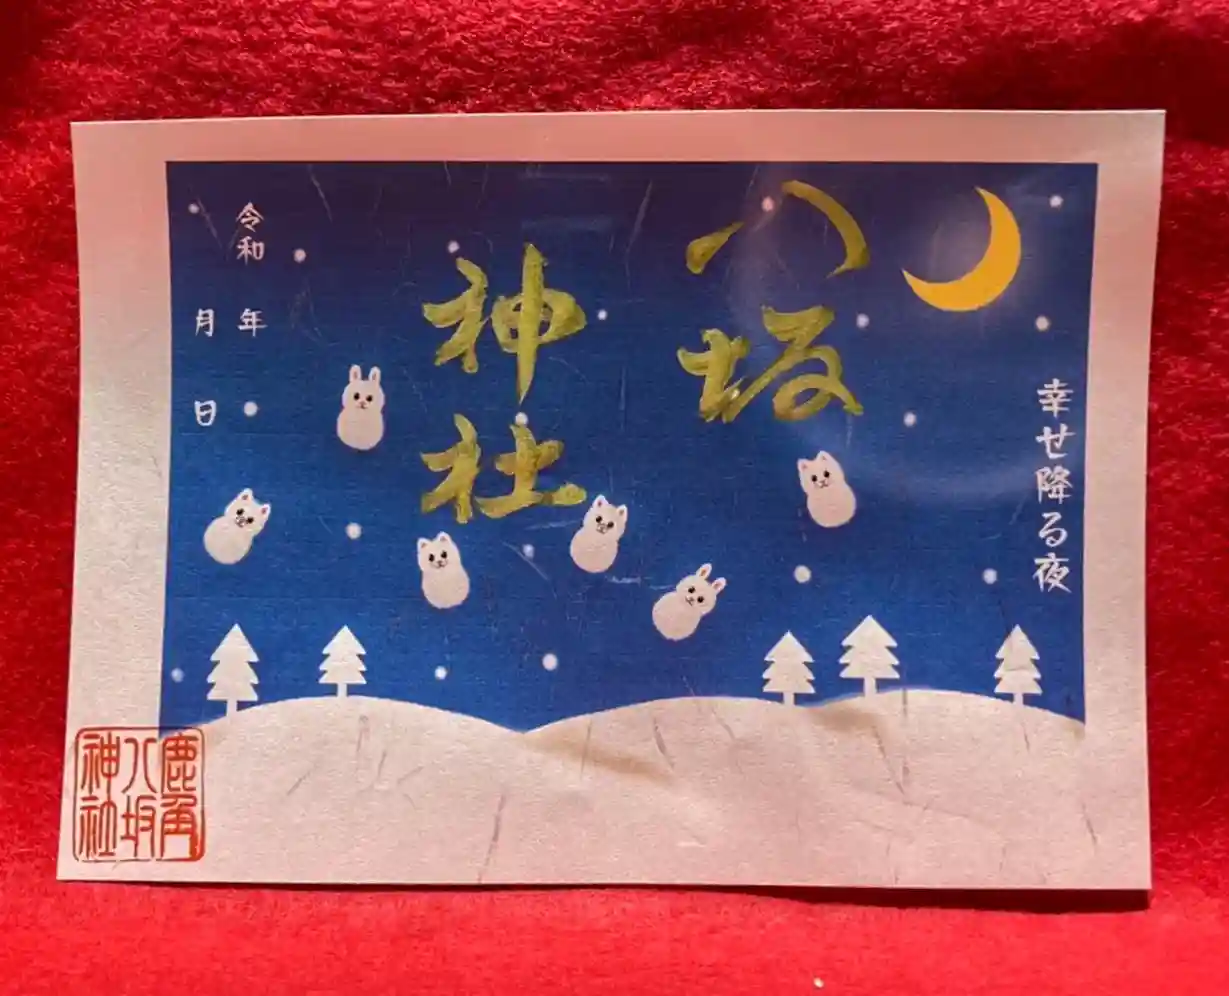 幸せ降る夜
八坂
神社
令和 年
月 日
鹿角
八坂
神社